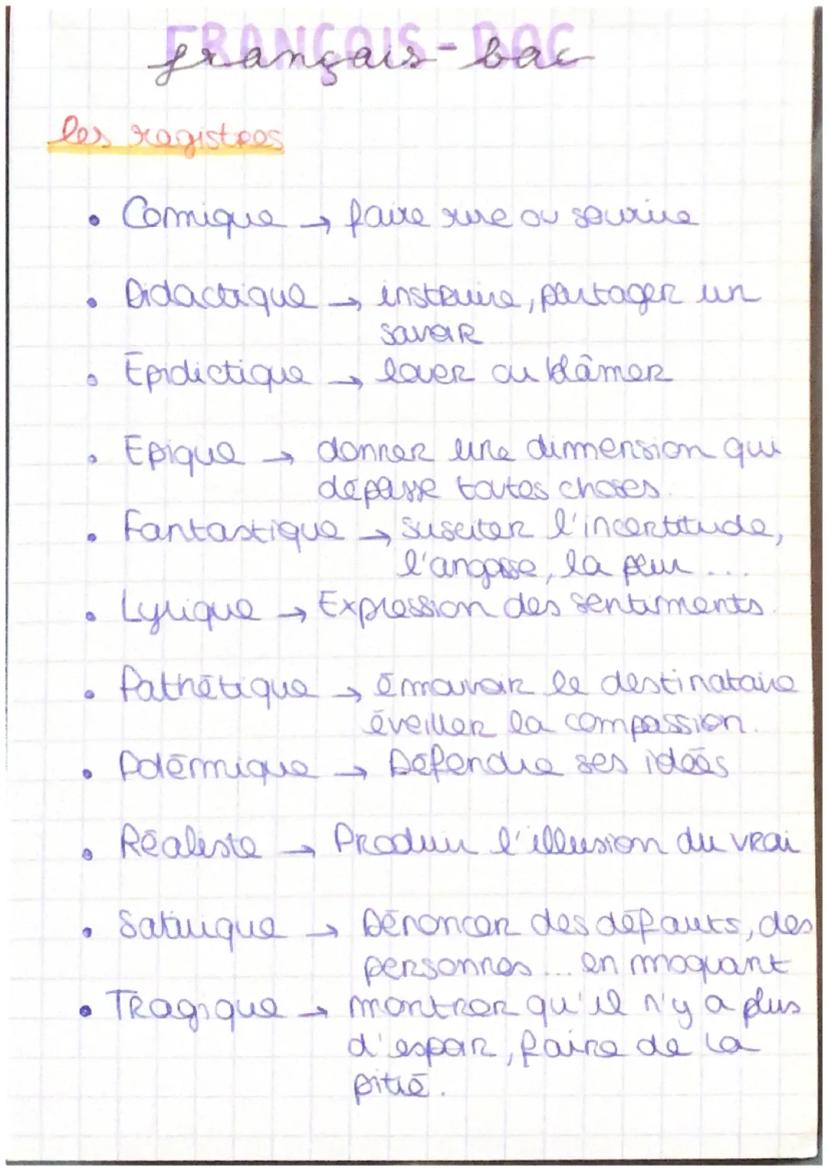 FRANÇAIS-BAC
français-bac
les registres
• Comique → faire rire ou sourire
• Didactique → instruire, partager un
savoir
• Épidictique → louer ou blâmer
• Épique → donner une dimmension qui
dépasse toutes choses.
• Fantastique → susciter l'incertitude,
l'angoisse, la peur ...
• Lyrique → Expression des sentiments.
• Pathétique → émouvoir le destinataire
éveiller la compassion.
• Polémique → Défendre ses idées
• Réaliste → Produir l'illusion du vrai
• Satirique → Dénoncer des défauts, des
personnes ... en moquant
• Tragique → montrer qu'il n'y a plus
d'espoir, faire de la
pitié.